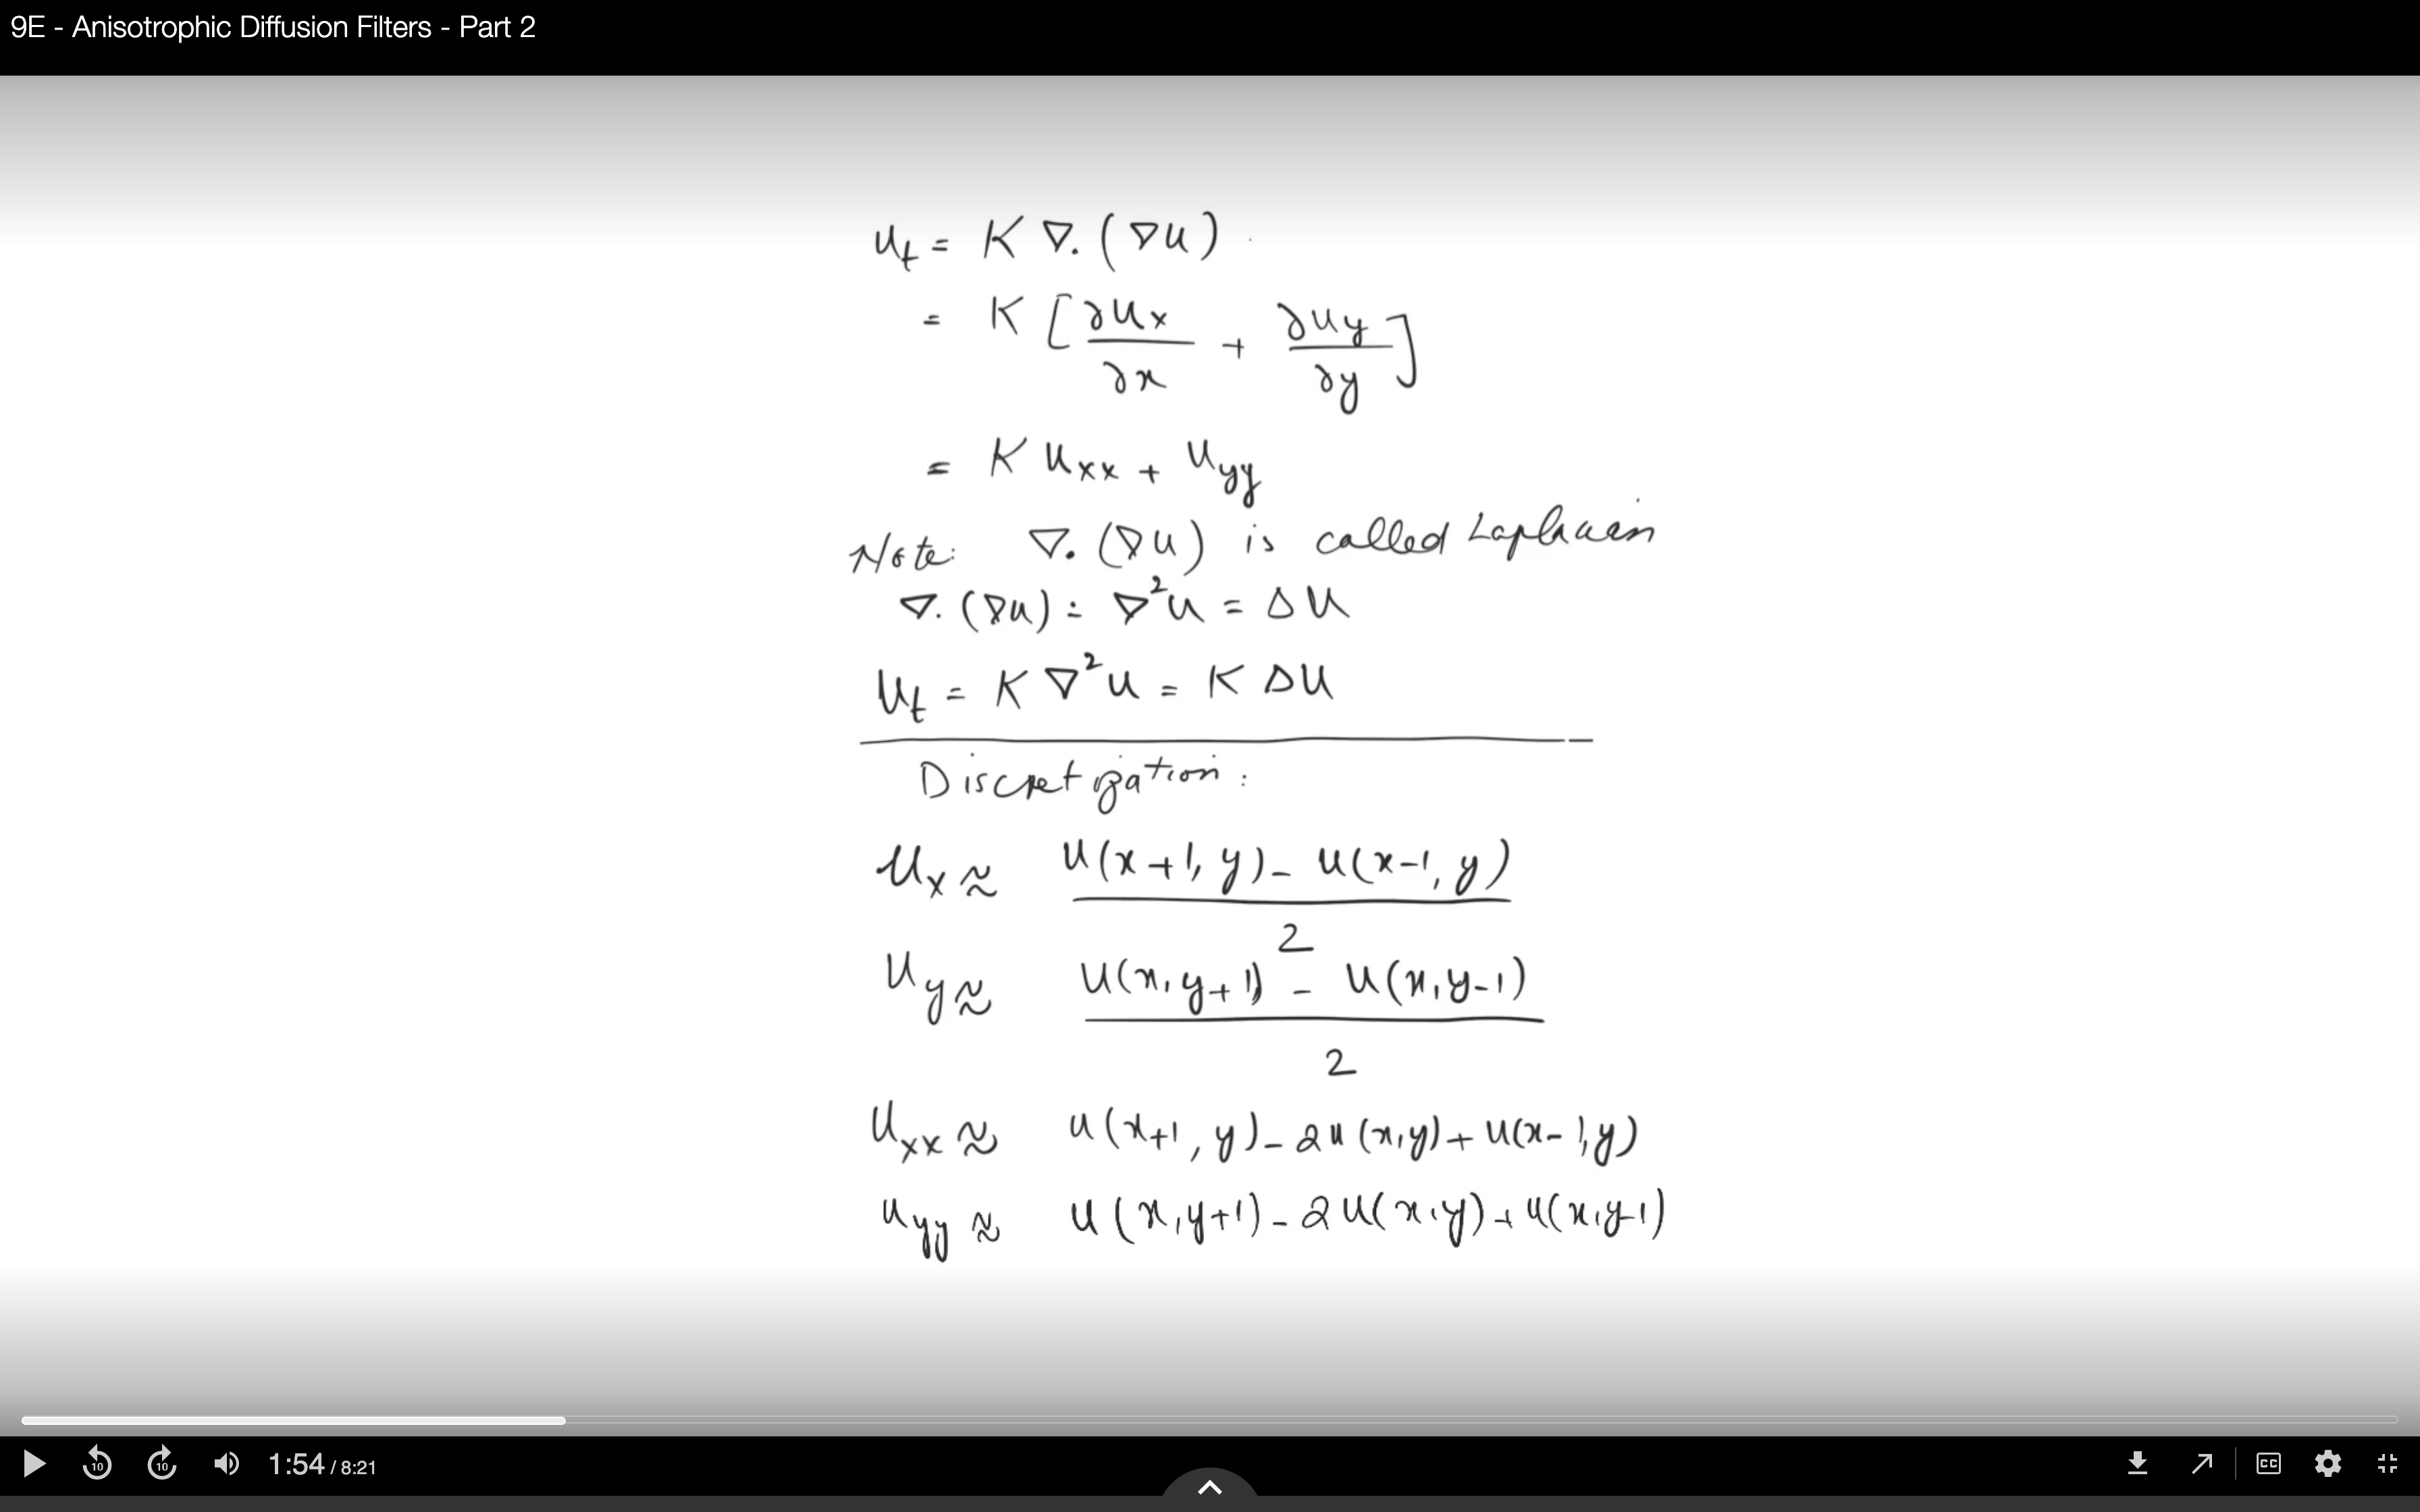 9E - Anisotrophic Diffusion Filters - Part 2
u_t = K ∇. (∇u)
= K [∂u_x/∂x + ∂u_y/∂y]
= K u_xx + u_yy
Note: ∇. (∇u) is called Laplacian
∇. (∇u) = ∇²u = Δu
u_t = K ∇²u = K Δu
Discretization:
u_x ≈ (u(x+1, y) - u(x-1, y))/2
u_y ≈ (u(x, y+1) - u(x, y-1))/2
u_xx ≈ u(x+1, y) - 2u(x, y) + u(x-1, y)
u_yy ≈ u(x, y+1) - 2u(x, y) + u(x, y-1)
10 10 1:54 / 8:21 CC